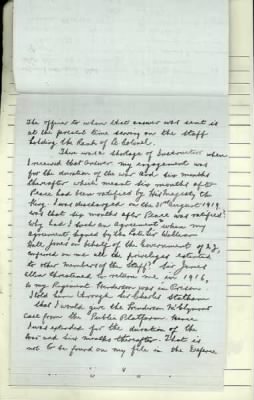 The officer to whom that answer was sent is
at the present time serving on the Staff
holding the Rank of Lt Colonel.
There was a shortage of Instructors when
I received that Order my engagement was
for the duration of the war and six months
thereafter which meant six months after
Peace had been ratified by His Majesty the
King. I was discharged on the 31st August 1919
was that six months after Peace was ratified?
Why had I such an agreement when my
agreement signed by the late Sir William
Hall Jones on behalf of the Government of N.Z.
conferred on me all the privileges extended
to other members of the Staff? Sir James
Allen threatened to return me in 1916,
to my Regiment Ponderson was in Prison.
I told him through Sir Charles Statham
that I would give the Ponderson
case from the Public Platform. Hence
I was extended for the duration of the
war and six months thereafter. That is
not to be found on my file in the Defence